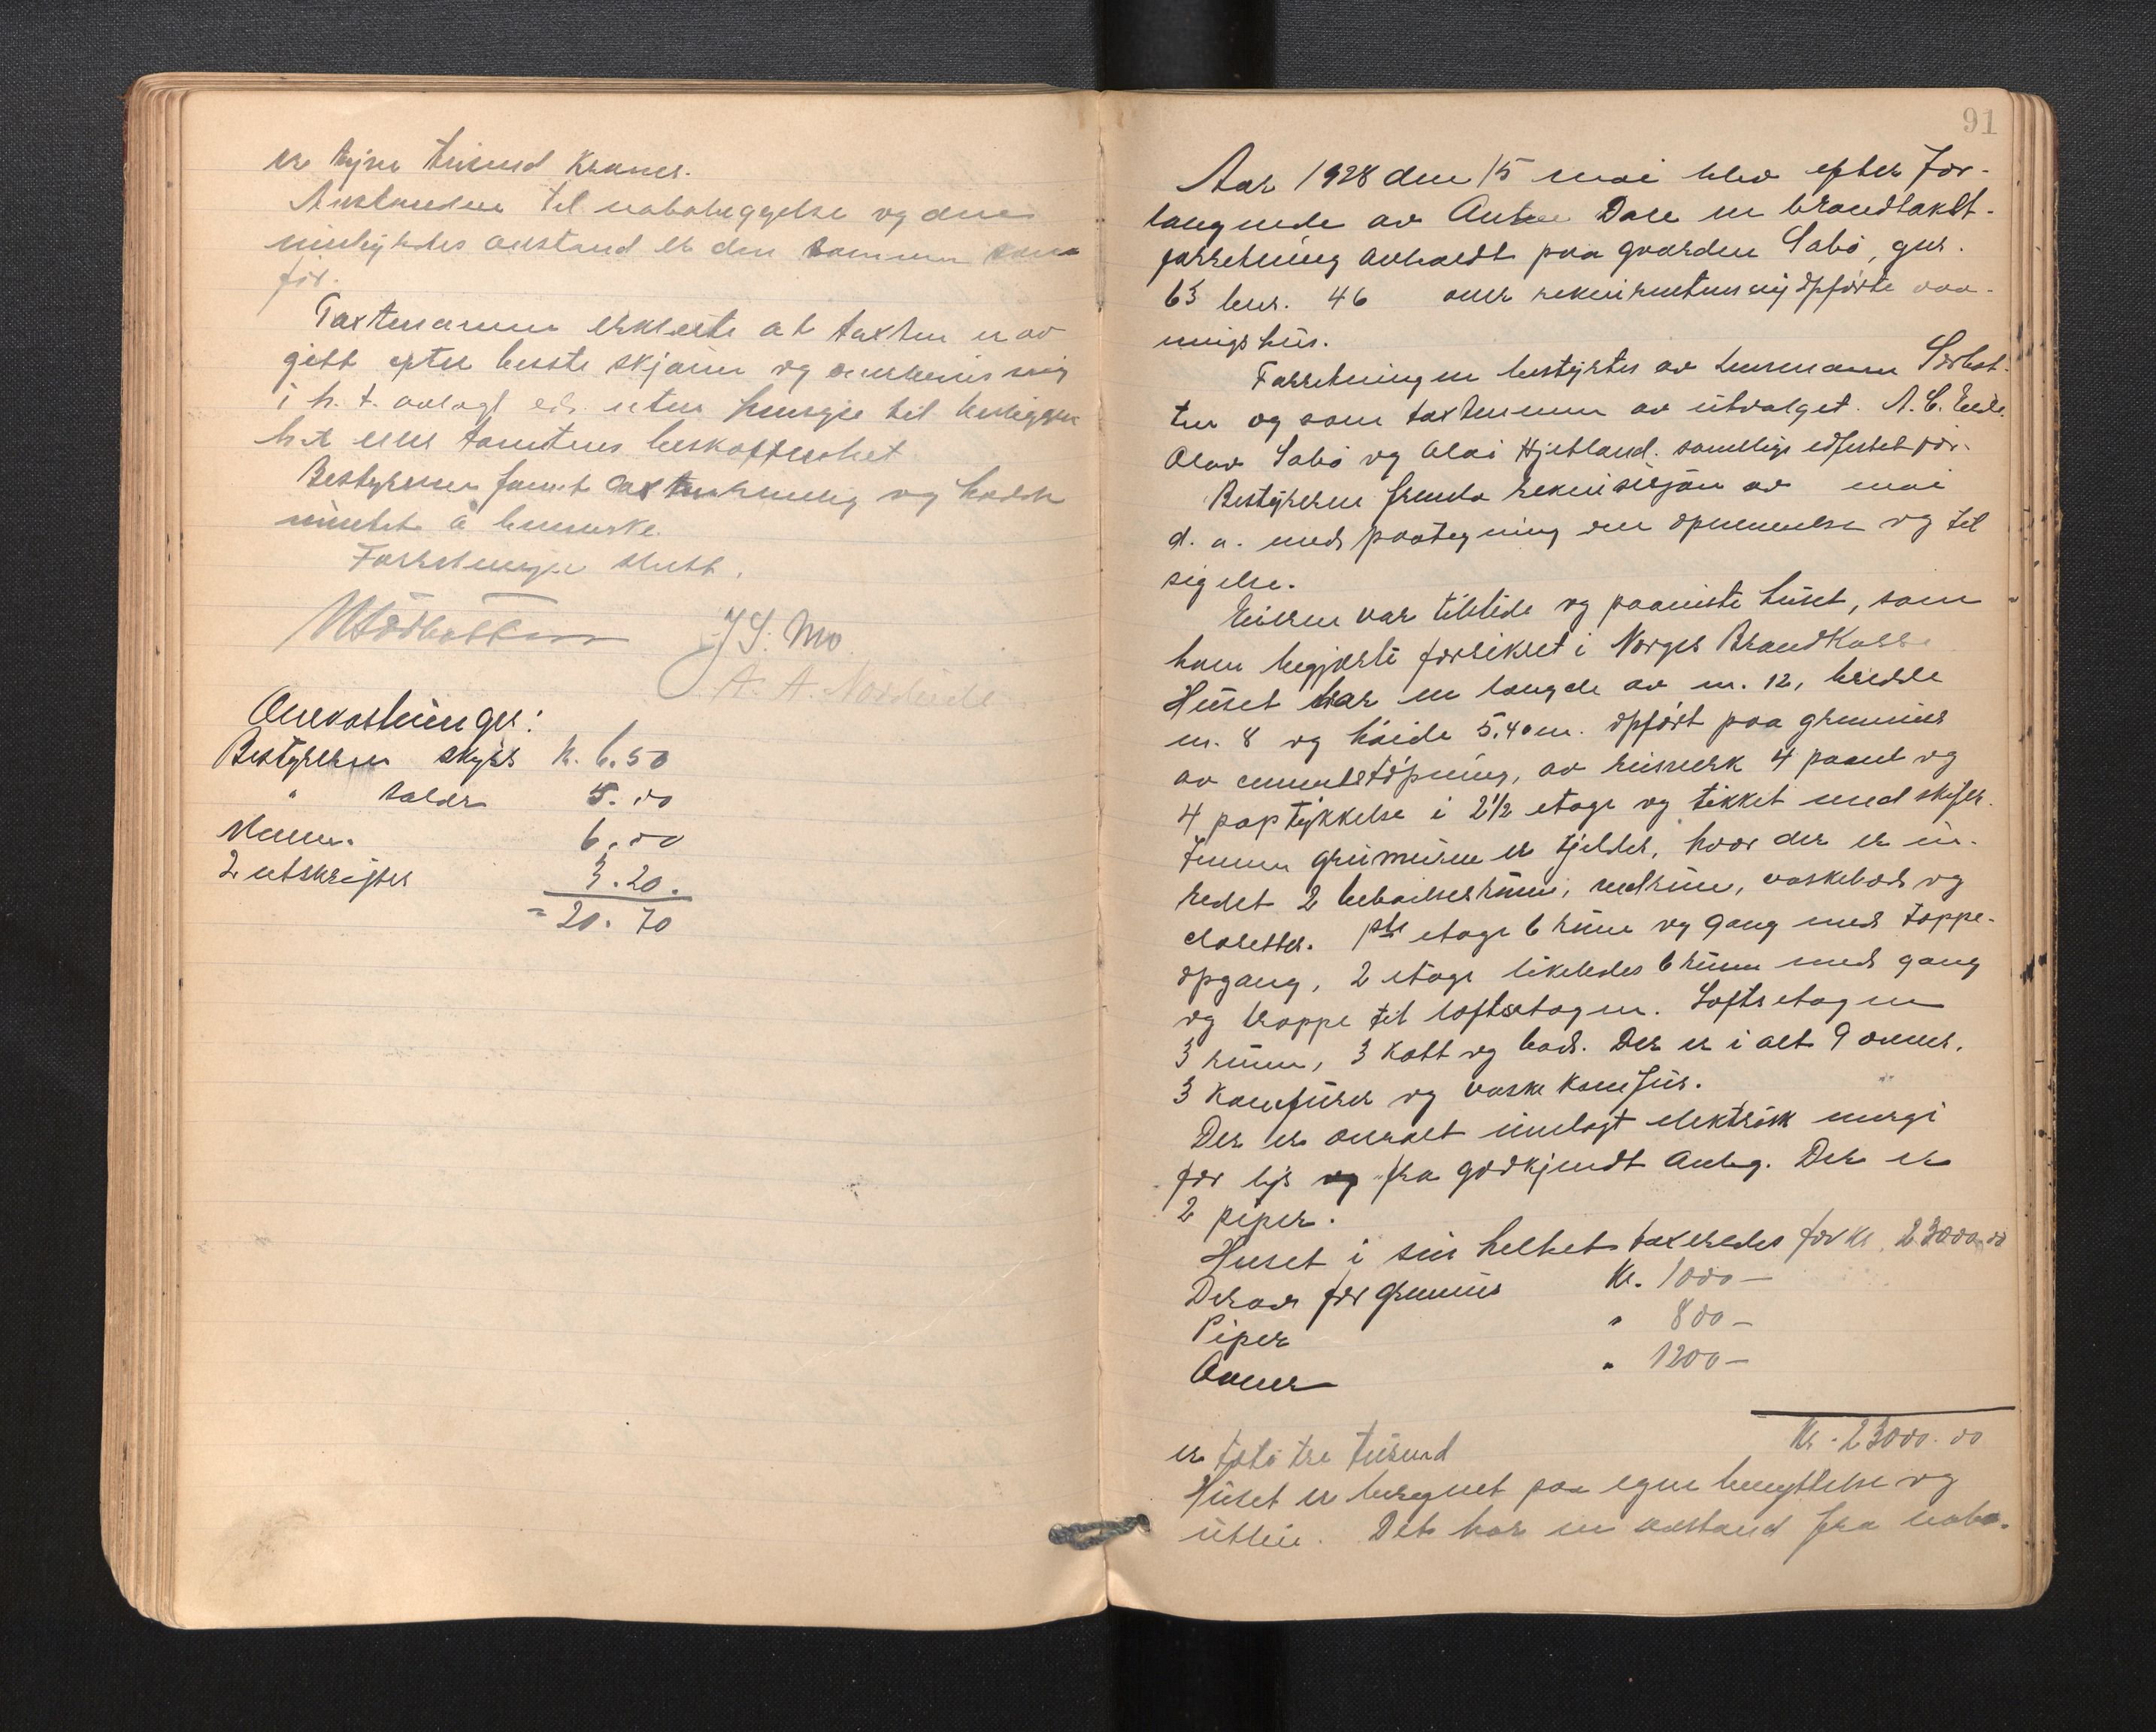 er tyve tusend kroner.
Avstanden til nabobyggelse og dens
avstand er den samme som
før.
Taxtmennene erklærte at taxten er av
gitt efter beste skjønn og overbevisning
i h. t. avlagt ed. uten hensyn til beliggen
het eller tomtens beskaffenhet.
Bestyreren fant taxten rimelig og hadde
intet å bemerke.
Forretningen slutt.
J S. Mo
A. A. Nordeide
Omkostninger:
Bestyreren skyss k. 6.50
" salær 5.00
Menn. 6.00
2 utskrifter 3.20.
= 20.70
91
Aar 1928 den 15 mai blev efter for-
langende av Dale en brandtakst-
forretning avholdt paa gaarden Sabø, gnr.
63 bnr. 46 over rekvirentens nyopførte vaa-
ningshus.
Forretningen bestyrtes av lensmann Sørbot-
ten og som taxtmenn av utvalget. A. C. Eide.
Olav Sabø og Olai Hjetland. samtlige edfestet før.
Bestyreren fremla rekvisisjon av mai
d. a. med paategning om opnevnelse og til
sigelse.
Eieren var tilstede og paaviste huset, som
han begjærte forsikret i Norges Brandkasse
Huset har en længde av m. 12, bredde
m. 8 og høide 5.40 m. opført paa grunmur
av cementstøpning, av reisverk 4 panel og
4 paptykkelse i 2½ etage og tækket med skifer.
Innen grunmuren er kjelder, hvor der er in-
redet 2 beboelsesrum, vedrum, vaskebod og
closetter. 1ste etage 6 rum og gang med trappe-
opgang, 2 etage likeledes 6 rum med gang
og trappe til loftsetagen. Loftsetagen
3 rum, 3 kott og bod. Der er i alt 9 ovner.
3 komfurer og vaskekomfur.
Der er overalt innlagt elektrisk energi
for lys og fra godkjendt anleg. Der er
2 piper.
Huset i sin helhet taxeredes for kr. 23000.00
Derav for grunmur Kr. 1000 —
Piper " 800 —
Ovner " 1200 —
Kr. 23000.00
er toti tre tusend
Huset er beregnet paa egen benyttelse og
utleie. Det har en avstand fra nabo-